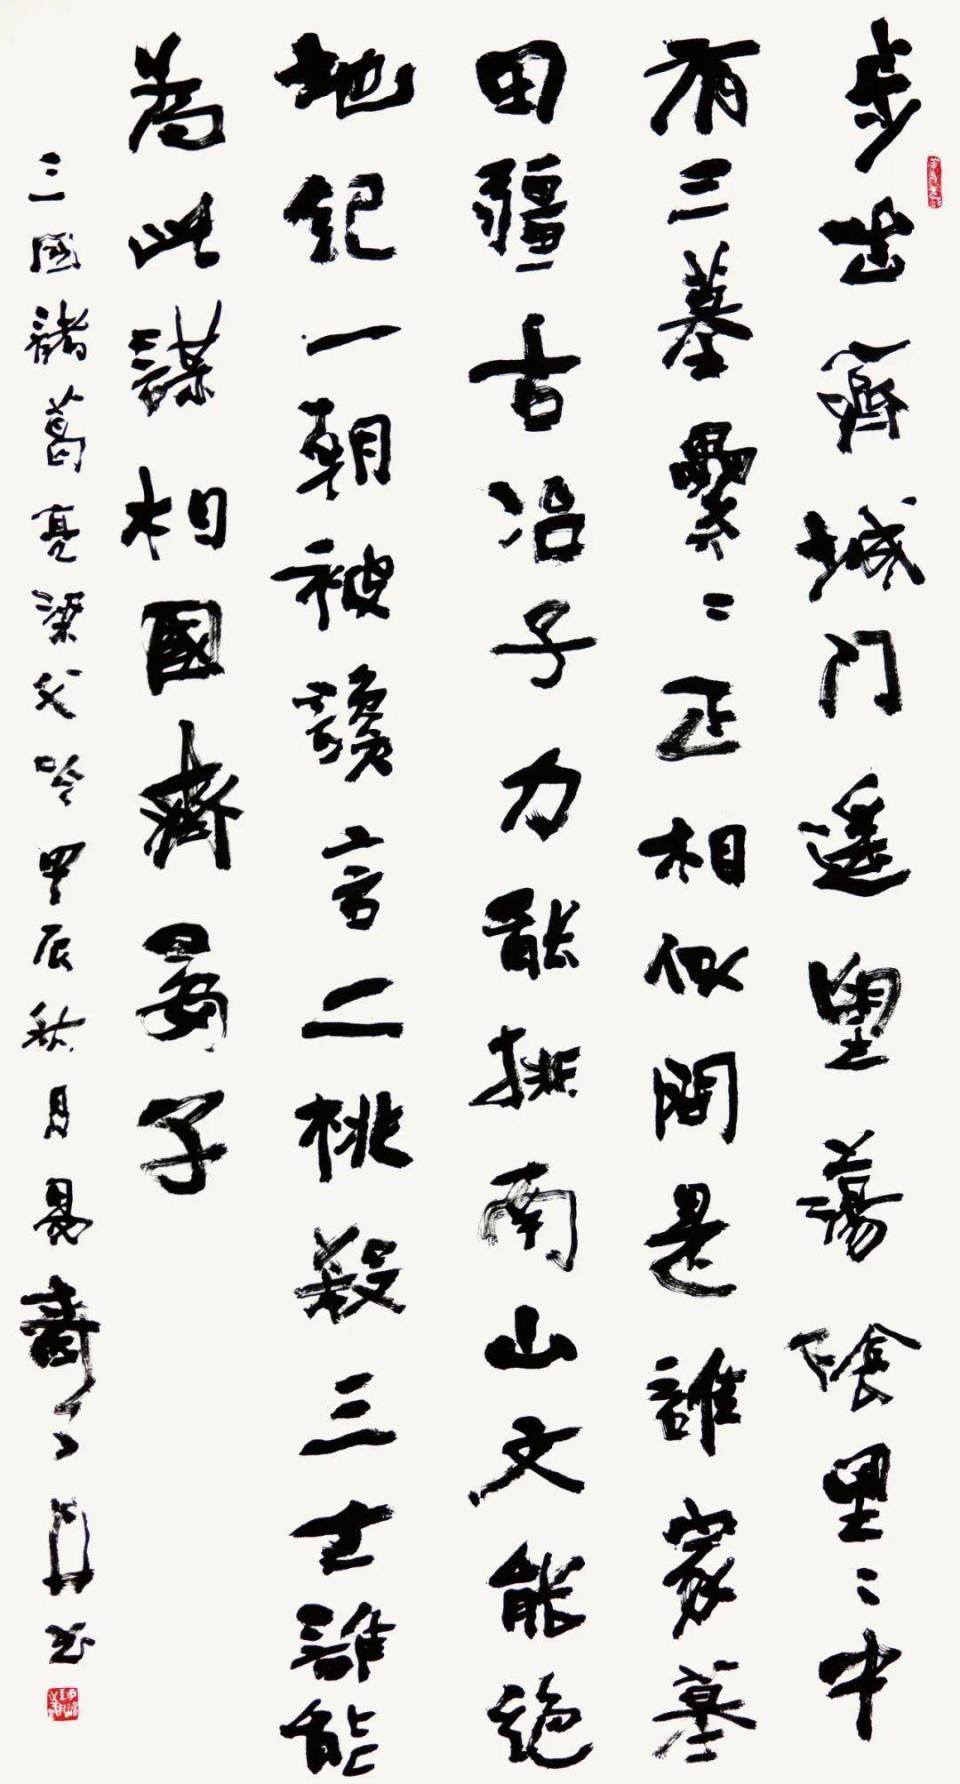 步出齊城門遥望蕩陰里〻中
有三墓纍〻正相似問是誰家墓
田疆古冶子力能排南山文能絕
地紀一朝被讒言二桃殺三士誰能
為此謀相國齊晏子
三國諸葛亮梁父吟甲辰秋月